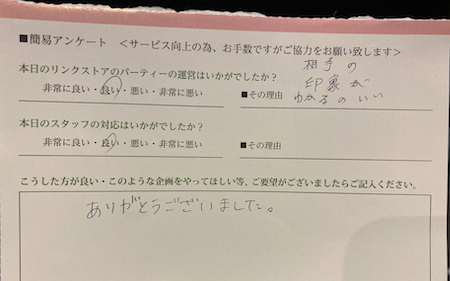 ■簡易アンケート ＜サービス向上の為、お手数ですがご協力をお願い致します＞
本日のリンクストアのパーティーの運営はいかがでしたか？
非常に良い・良い・悪い・非常に悪い
■その理由
相手の
印象が
わかるのいい
本日のスタッフの対応はいかがでしたか？
非常に良い・良い・悪い・非常に悪い
■その理由
こうした方が良い・このような企画をやってほしい等、ご要望がございましたらご記入ください。
ありがとうございました。